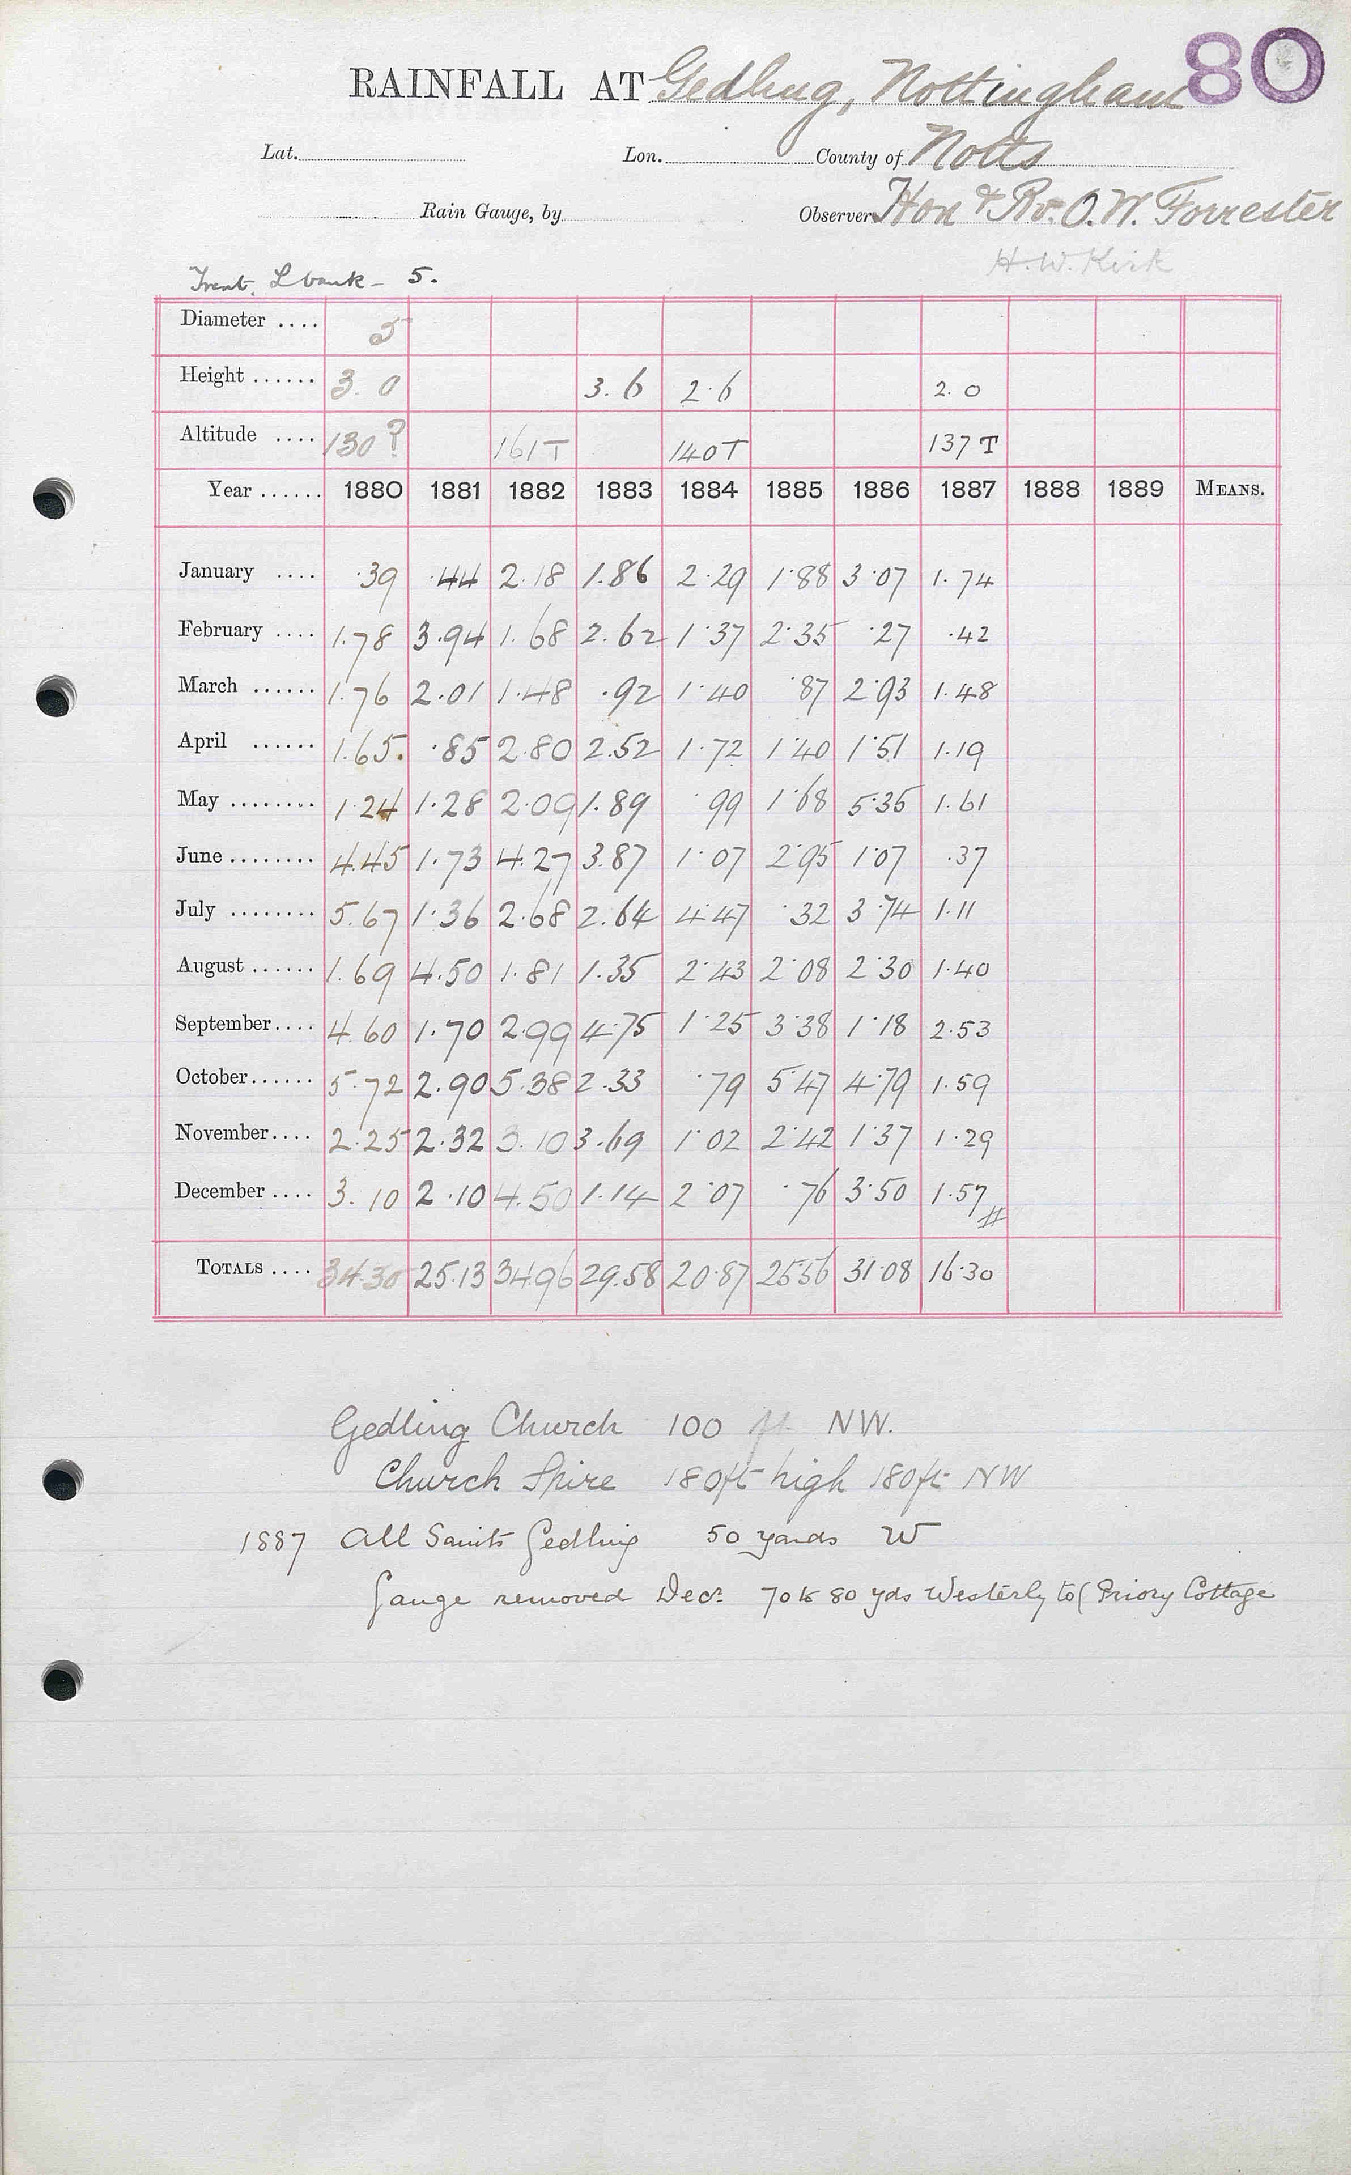 80
RAINFALL AT Gedling, Nottingham
Lat. Lon. County of Notts
Rain Gauge, by Observer Hon & Rv. O. W. Forrester
H. W. Kirk
Trent. L bank - 5.
Diameter .... 5
Height ...... 3. 0 3. 6 2.6 2. 0
Altitude .... 130? 161T 140T 137 T
Year ...... 1880 1881 1882 1883 1884 1885 1886 1887 1888 1889 MEANS.
January .... .39 .44 2.18 1.86 2.29 1.88 3.07 1.74
February .... 1.78 3.94 1.68 2.62 1.37 2.35 .27 .42
March ...... 1.76 2.01 1.48 .92 1.40 .87 2.93 1.48
April ...... 1.65. .85 2.80 2.52 1.72 1.40 1.51 1.19
May ........ 1.24 1.28 2.09 1.89 .99 1.68 5.35 1.61
June ........ 4.45 1.73 4.27 3.87 1.07 2.95 1.07 .37
July ........ 5.67 1.36 2.68 2.64 4.47 .32 3.74 1.11
August ...... 1.69 4.50 1.81 1.35 2.43 2.08 2.30 1.40
September .... 4.60 1.70 2.99 4.75 1.25 3.38 1.18 2.53
October ...... 5.72 2.90 5.38 2.33 .79 5.47 4.79 1.59
November .... 2.25 2.32 3.10 3.69 1.02 2.42 1.37 1.29
December .... 3.10 2.10 4.50 1.14 2.07 .76 3.50 1.57
TOTALS .... 34.30 25.13 34.96 29.58 20.87 25.56 31.08 16.30
Gedling Church 100 ft NW.
Church Spire 180ft high 180ft NW
1887 All Saints Gedling 50 yards W
Gauge removed Decr. 70 to 80 yds Westerly to (Priory Cottage